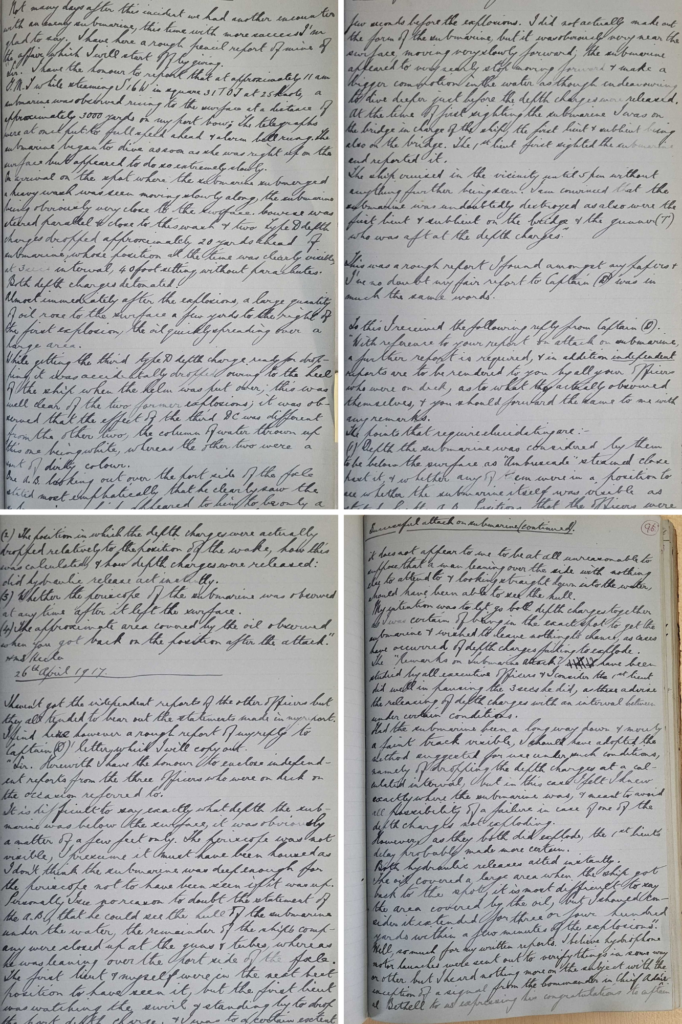 Not many days after this incident we had another encounter
with an enemy submarine, this time with more success I'm
glad to say. I have here a rough pencil report of mine of
the affair which I will start off by giving.
Sir. I have the honour to report that at approximately 11 am
while steaming in square at 25 knots, a
submarine was observed rising to the surface at a distance of
approximately 3000 yards on my port bow; the telegraphs
were at once put to full speed ahead & alarm bell rung, the
submarine began to dive as soon as she was right up on the
surface but appeared to do so extremely slowly.
On arrival on the spot where the submarine submerged
a heavy wash was seen moving slowly along, the submarine
being obviously very close to the surface. Course was
steered parallel & close to this wash & two type D depth
charges dropped approximately 20 yards ahead of
submarine, whose position at the time was clearly visible
at 3 interval, 40 foot setting without parachutes.
Both depth charges detonated.
Almost immediately after the explosions, a large quantity
of oil rose to the surface a few yards to the right of
the first explosion, the oil quickly spreading over a
large area.
While getting the third type D depth charge ready for drop-
ping it was accidentally dropped owing to the heel
of the ship when the helm was put over, this was
well clear of the two former explosions; it was ob-
served that the effect of the third DC was different
from the other two, the column of water thrown up
this one being white, whereas the other two were a
sort of dirty colour.
One A.B. looking out over the port side of the fo'cle
stated most emphatically, that he clearly saw the
appeared to him to be only a
few seconds before the explosions. I did not actually make out
the form of the submarine, but it was obviously very near the
surface, moving very slowly forward, the submarine
appeared to very nearly stop moving forward & make a
bigger commotion in the water as though endeavouring
to dive deeper just before the depth charges were released.
At the time of first sighting the submarine I was on
the bridge in charge of the ship, the first lieut & sublieut being
also on the bridge. The 1st lieut first sighted the submarine
and reported it.
The ship cruised in the vicinity until 5 pm without
anything further being seen. I am convinced that the
submarine was undoubtedly destroyed as also were the
first lieut & sublieut on the bridge & the gunner (T)
who was aft at the depth charges"
This was a rough report I found amongst my papers &
I've no doubt my fair report to Captain (D) was in
much the same words.
To this I received the following reply from Captain (D).
"With reference to your report on attack on submarine,
a further report is required, & in addition independent
reports are to be rendered to you by all your officers
who were on deck, as to what they actually observed
themselves, & you should forward the same to me with
any remarks.
The points that require elucidating are:-
(1) Depth the submarine was considered by them
to be below the surface as "Ambuscade" steamed close
past it, & whether any of them were in a position to
see whether the submarine itself was visible as
stated by the A.B. that the officers were
(2) The position in which the depth charges were actually
dropped relatively to the position of the wake, how this
was calculated & how depth charges were released:
did hydraulic release act instantly.
(3) Whether the periscope of the submarine was observed
at any time after it left the surface.
(4) The approximate area covered by the oil observed
when you got back on the position after the attack."
HMS Hecla
26th April 1917
I haven't got the independent reports of the other officers but
they all tended to bear out the statements made in my report.
I find here however a rough report of my reply to
Captain (D)s letter, which I will copy out.
"Sir. Herewith I have the honour to enclose independ-
ent reports from the three officers who were on deck on
the occasion referred to.
It is difficult to say exactly what depth the sub-
marine was below the surface, it was obviously
a matter of a few feet only. The periscope was not
visible, I presume it must have been housed as
I don't think the submarine was deep enough for
the periscope not to have been seen if it was up.
Personally I see no reason to doubt the statement of
the A.B. that he could see the hull of the submarine
under the water, the remainder of the ship's comp-
any were closed up at the guns & tubes, whereas
he was leaning over the port side of the fo'cle.
The first lieut & myself were in the next best
position to have seen it, but the first lieut
was watching the swirl & standing by to drop
the port depth charge, & I was to a certain extent
Successful attack on submarine (continued).
96
it does not appear to me to be at all unreasonable to
suppose that a man leaning over the side with nothing
to attend to & looking straight down into the water,
should have been able to see the hull.
My intention was to let go both depth charges together
as I was certain of being in the exact spot to get the
submarine & wished to leave nothing to chance, as cases
have occurred of depth charges failing to explode.
The "Remarks on Submarine Attack" have been
studied by all executive officers & I consider the 1st lieut
did well in pausing the 3 secs he did, as these advise
the releasing of depth charges with an interval between
under certain conditions.
Had the submarine been a long way down & merely
a faint track visible, I should have adopted the
method suggested for use under such conditions,
namely of dropping the depth charges at a cal-
culated interval, but in this case I felt I knew
exactly where the submarine was, & meant to avoid
all possibility of a failure in case of one of the
depth charges not exploding.
However, as they both did explode, the 1st lieut's
delay probably made more certain.
Both hydraulic releases acted instantly.
The oil covered a large area when the ship got
back to the spot, it is most difficult to say
the area covered by the oil, but I should con-
sider it extended for three or four hundred
yards within a few minutes of the explosions.
Well, so much for my written reports. I believe hydrophone
motor launches were sent out to verify things in some way
or other but I heard nothing more on the subject with the
exception of a signal from the commander in chief
Bethell to us expressing his congratulations